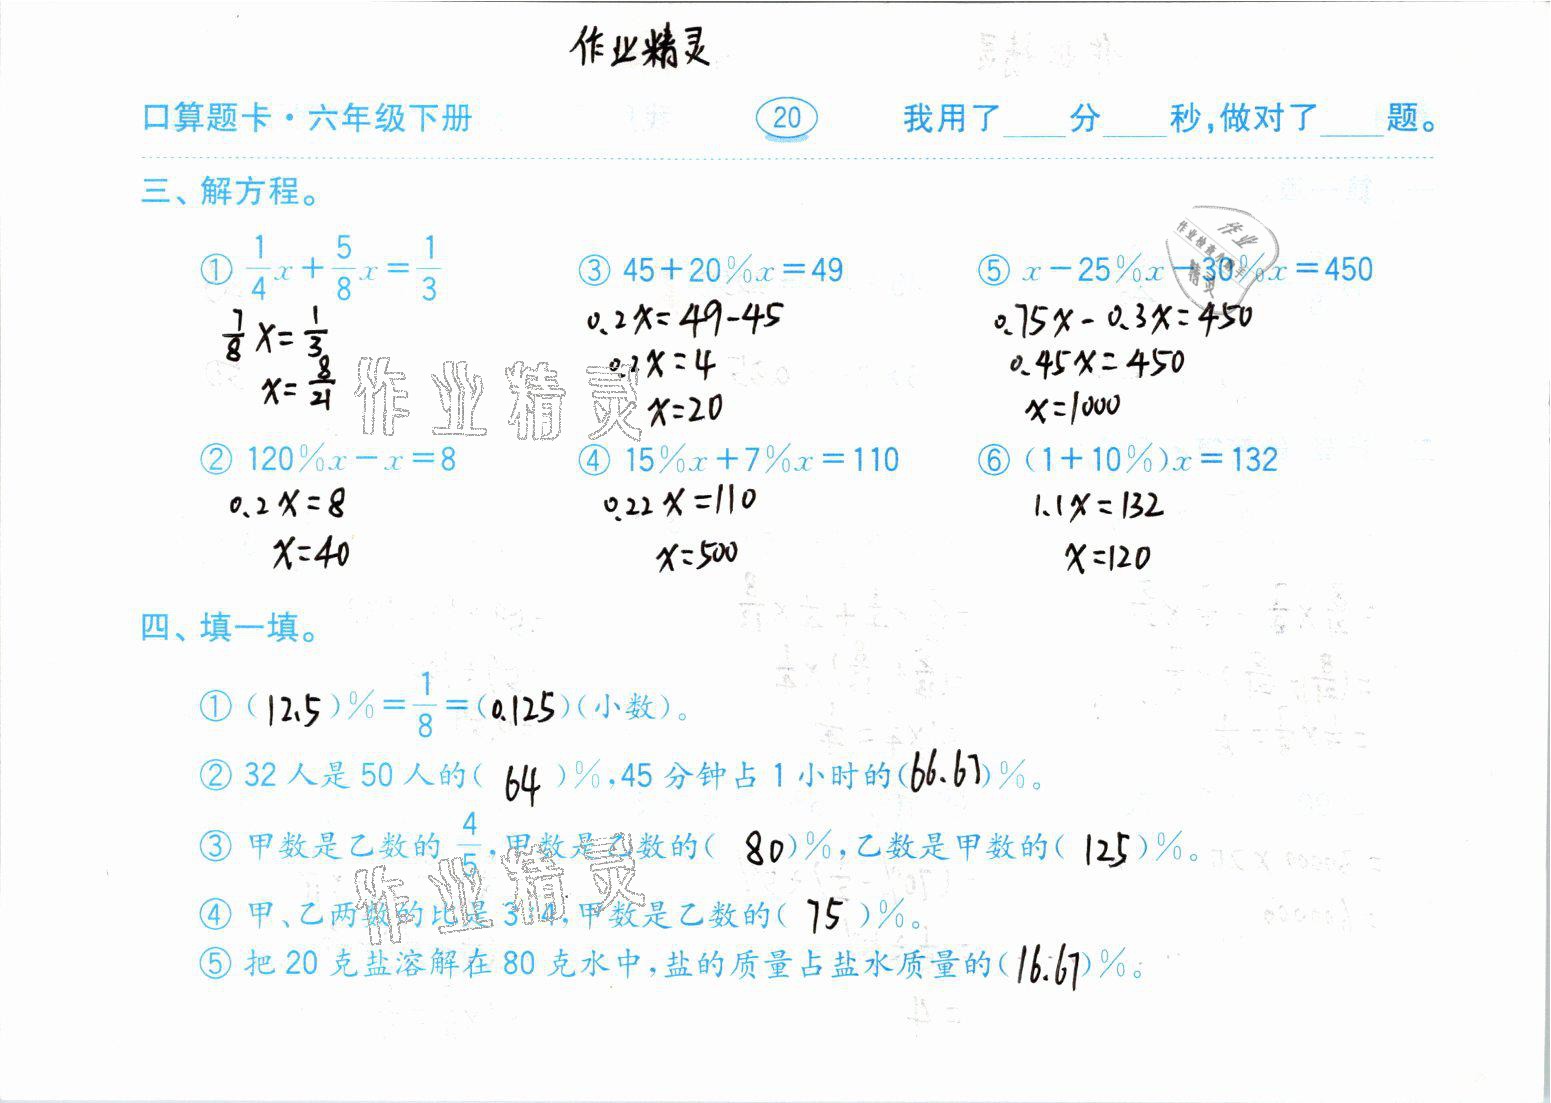 作业精灵
口算题卡·六年级下册 20 我用了____分____秒,做对了____题。
三、解方程。
① 1/4 x + 5/8 x = 1/3 ③ 45+20%x=49 ⑤ x-25%x-30%x=450
7/8 x = 1/3 0.2x=49-45 0.75x-0.3x=450
x = 8/21 0.2x=4 0.45x=450
x=20 x=1000
② 120%x-x=8 ④ 15%x+7%x=110 ⑥ (1+10%)x=132
0.2x=8 0.22x=110 1.1x=132
x=40 x=500 x=120
四、填一填。
① (12.5)%=1/8=(0.125)(小数)。
② 32人是50人的(64)%,45分钟占1小时的(66.67)%。
③ 甲数是乙数的4/5,甲数是乙数的(80)%,乙数是甲数的(125)%。
④ 甲、乙两数的比是3:4,甲数是乙数的(75)%。
⑤ 把20克盐溶解在80克水中,盐的质量占盐水质量的(16.67)%。
作业精灵
作业精灵
作业
精灵